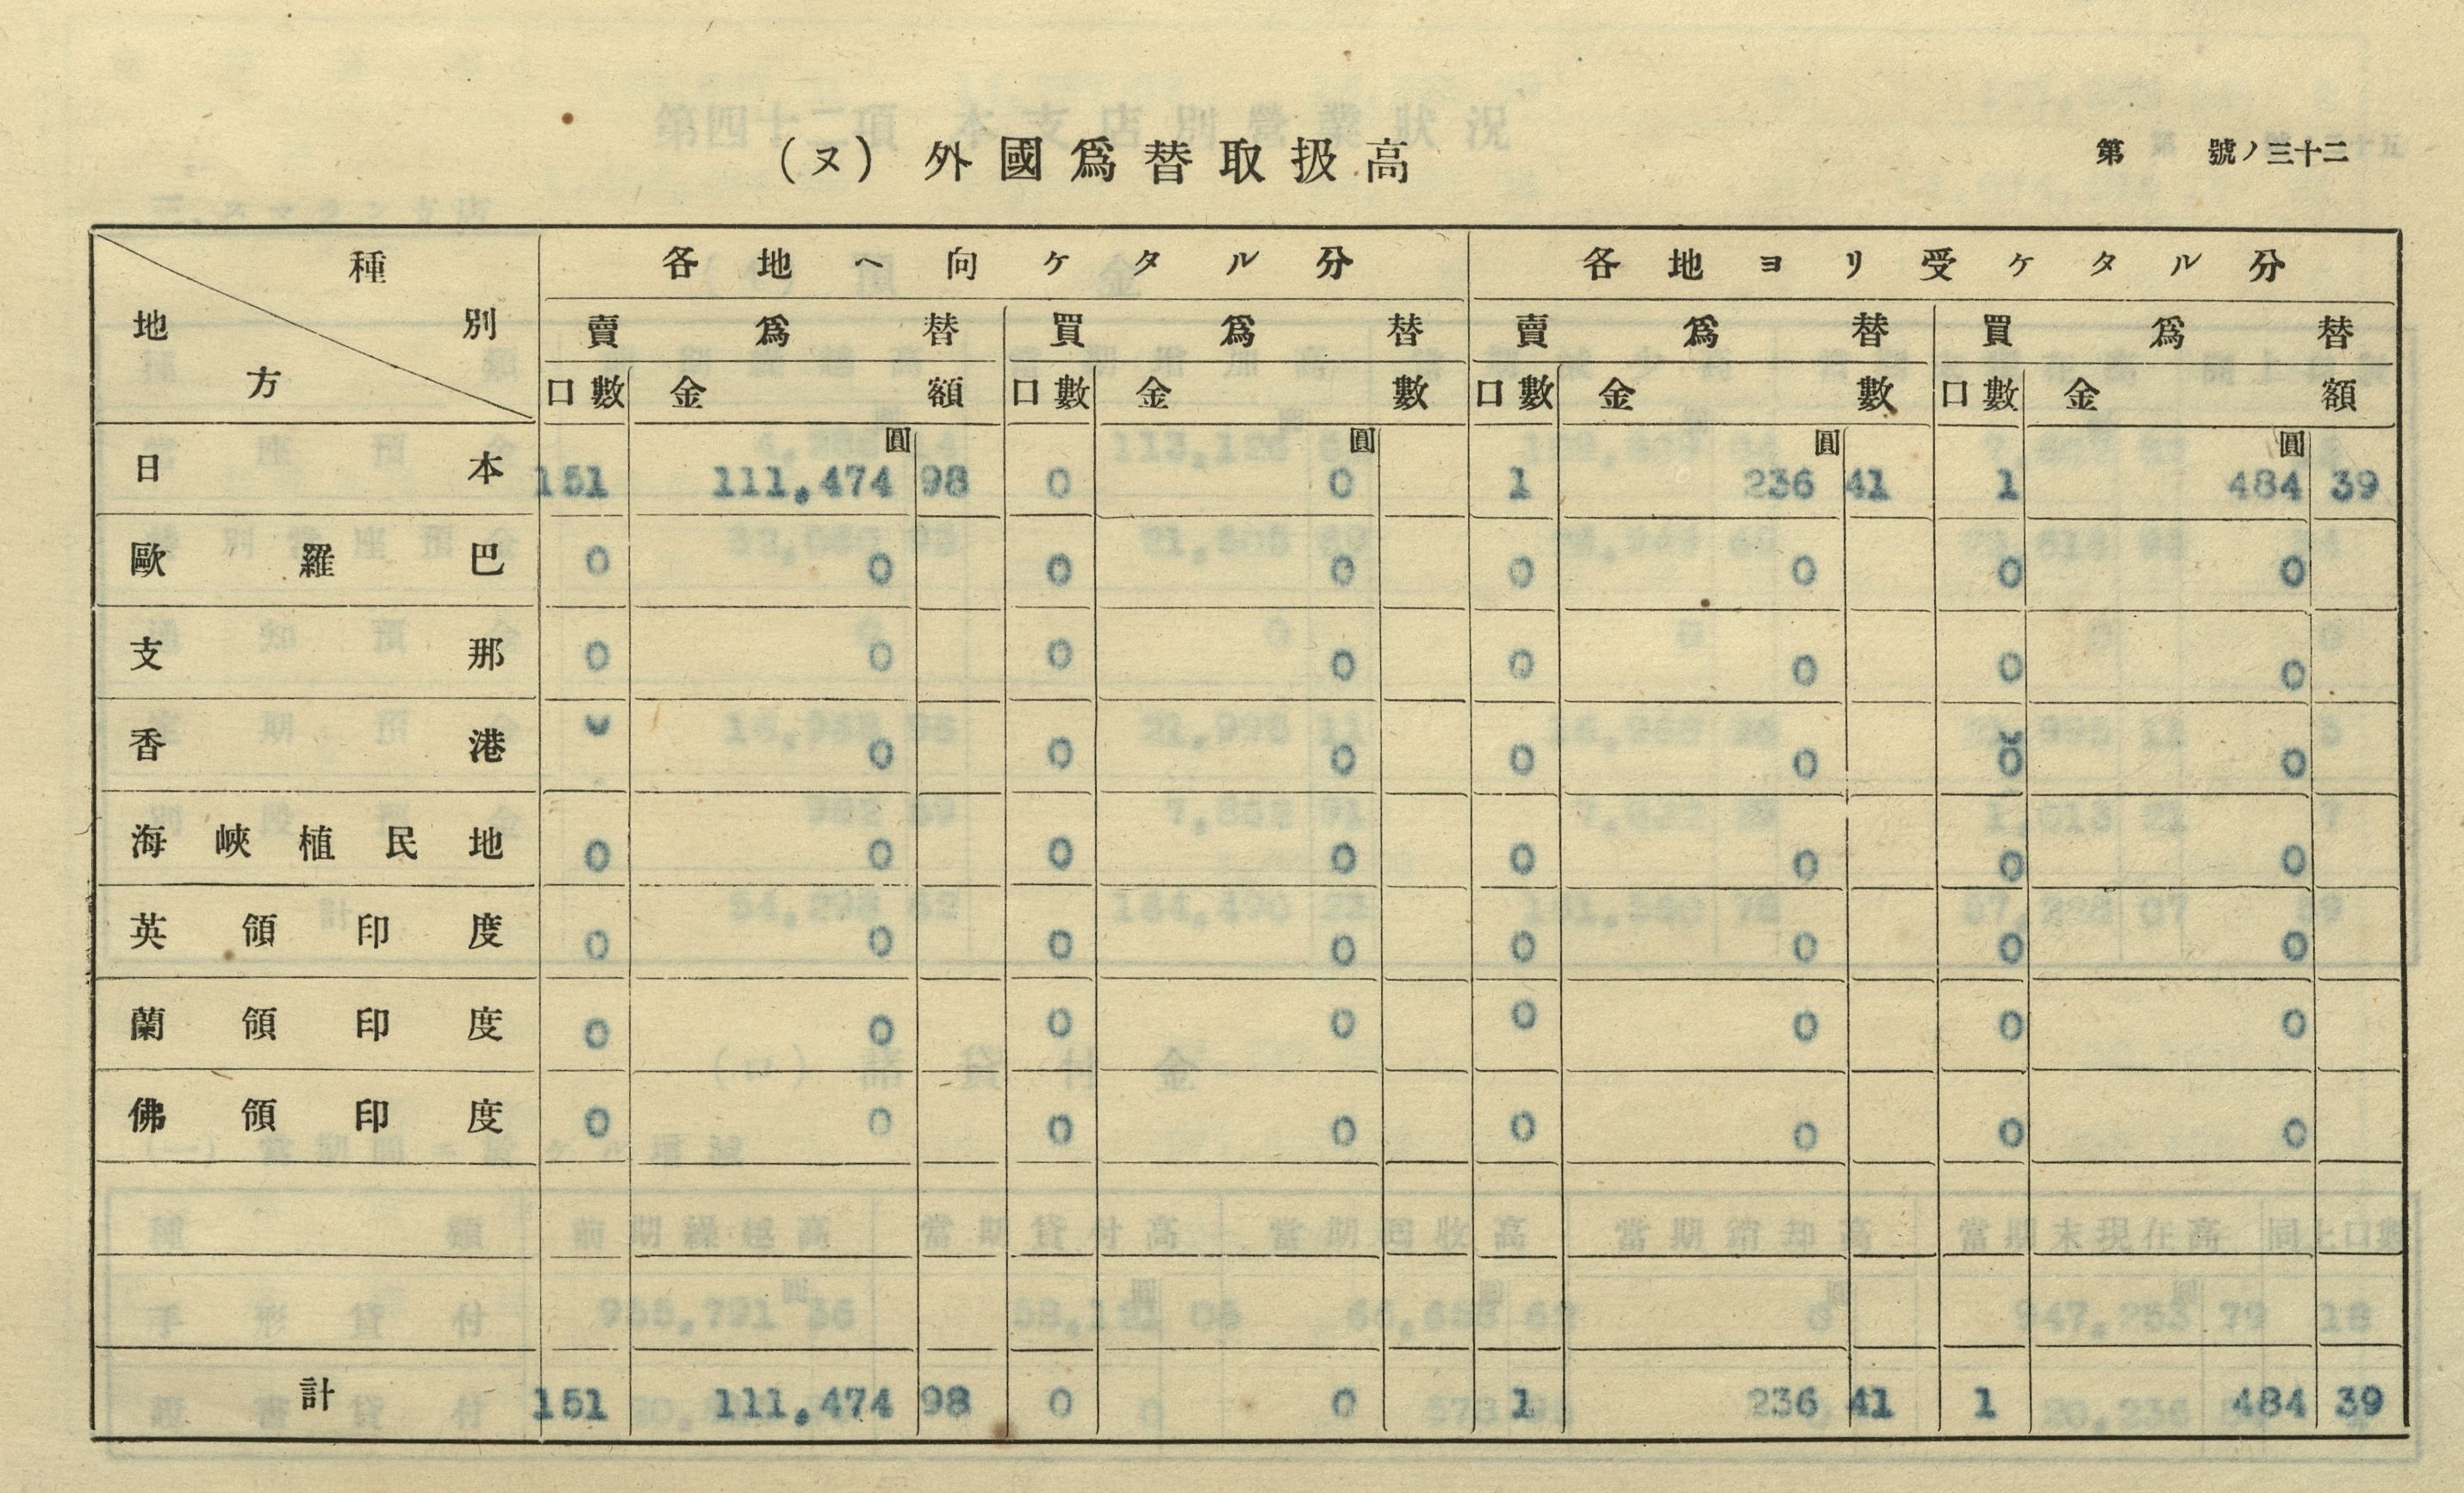 (ヌ) 外國爲替取扱高
第 號ノ三十二
種別 地方
各地ヘ向ケタル分 各地ヨリ受ケタル分
賣爲替 買爲替 賣爲替 買爲替
口數 金額 口數 金數 口數 金數 口數 金額
圓 圓 圓 圓
日本 151 111,474 98 0 0 1 236 41 1 484 39
歐羅巴 0 0 0 0 0 0 0 0
支那 0 0 0 0 0 0 0 0
香港 0 0 0 0 0 0 0
海峽植民地 0 0 0 0 0 0 0 0
英領印度 0 0 0 0 0 0 0 0
蘭領印度 0 0 0 0 0 0 0 0
佛領印度 0 0 0 0 0 0 0 0
計 151 111,474 98 0 0 1 236 41 1 484 39